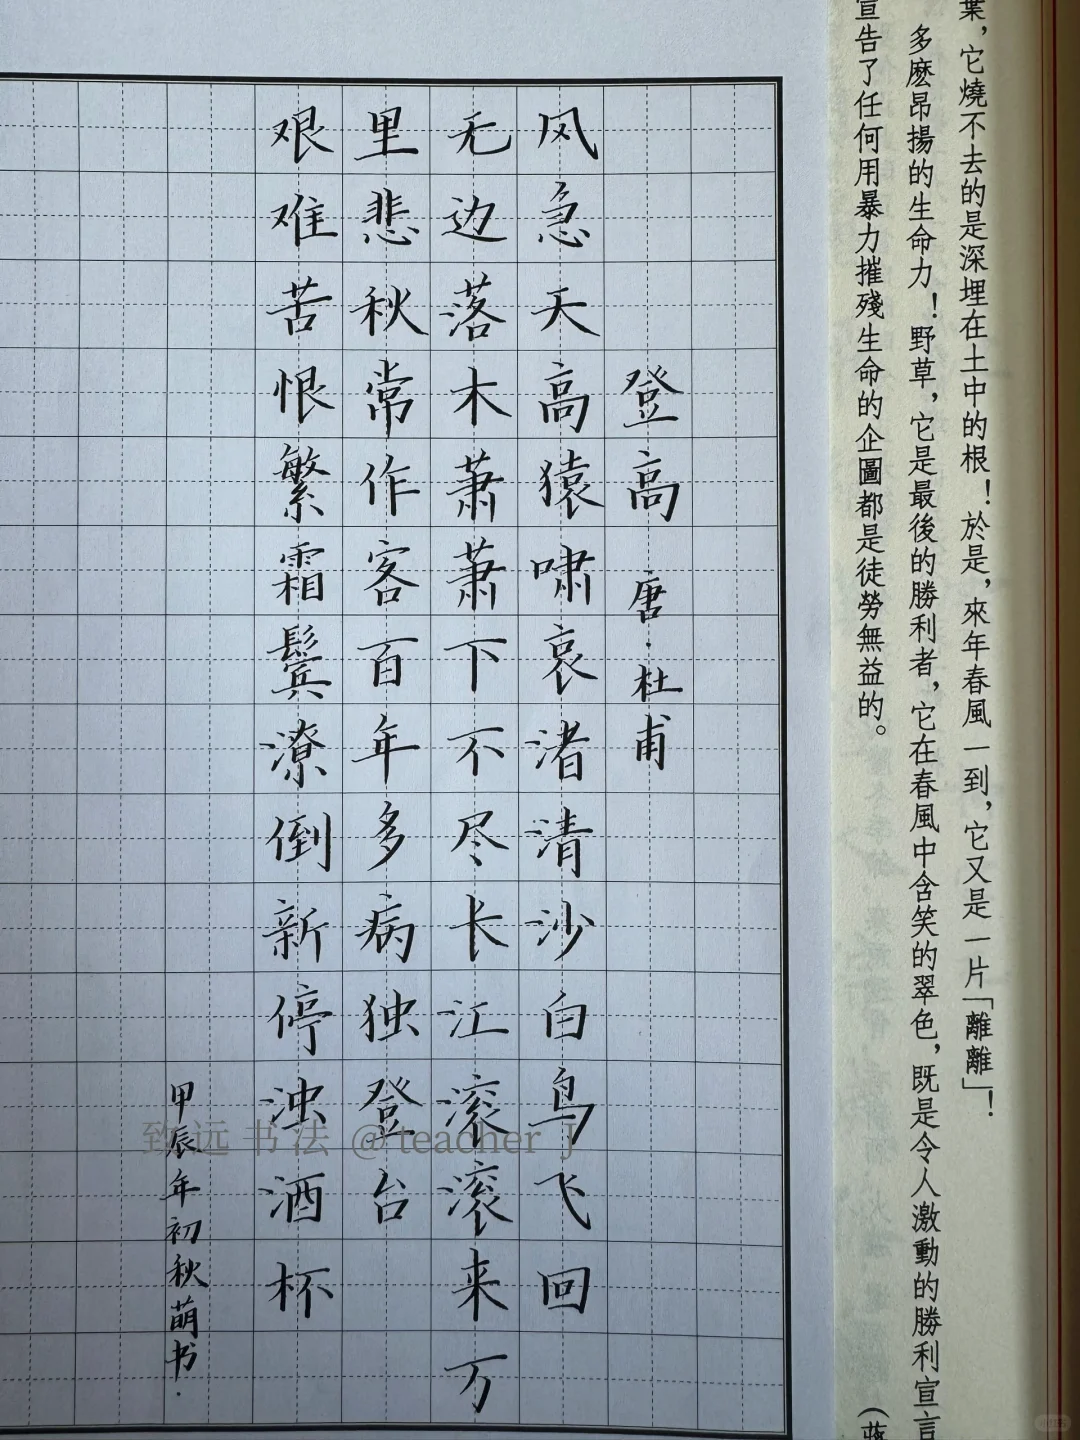 葉，它燒不去的是深埋在土中的根！於是，來年春風一到，它又是一片「離離」！
多麽昂揚的生命力！野草，它是最後的勝利者，它在春風中含笑的翠色，既是令人激動的勝利宣言
宣告了任何用暴力摧殘生命的企圖都是徒勞無益的。
登高 唐·杜甫
风急天高猿啸哀渚清沙白鸟飞回
无边落木萧萧下不尽长江滚滚来万
里悲秋常作客百年多病独登台
艰难苦恨繁霜鬓潦倒新停浊酒杯
甲辰年初秋萌书.
致远书法@teacher J